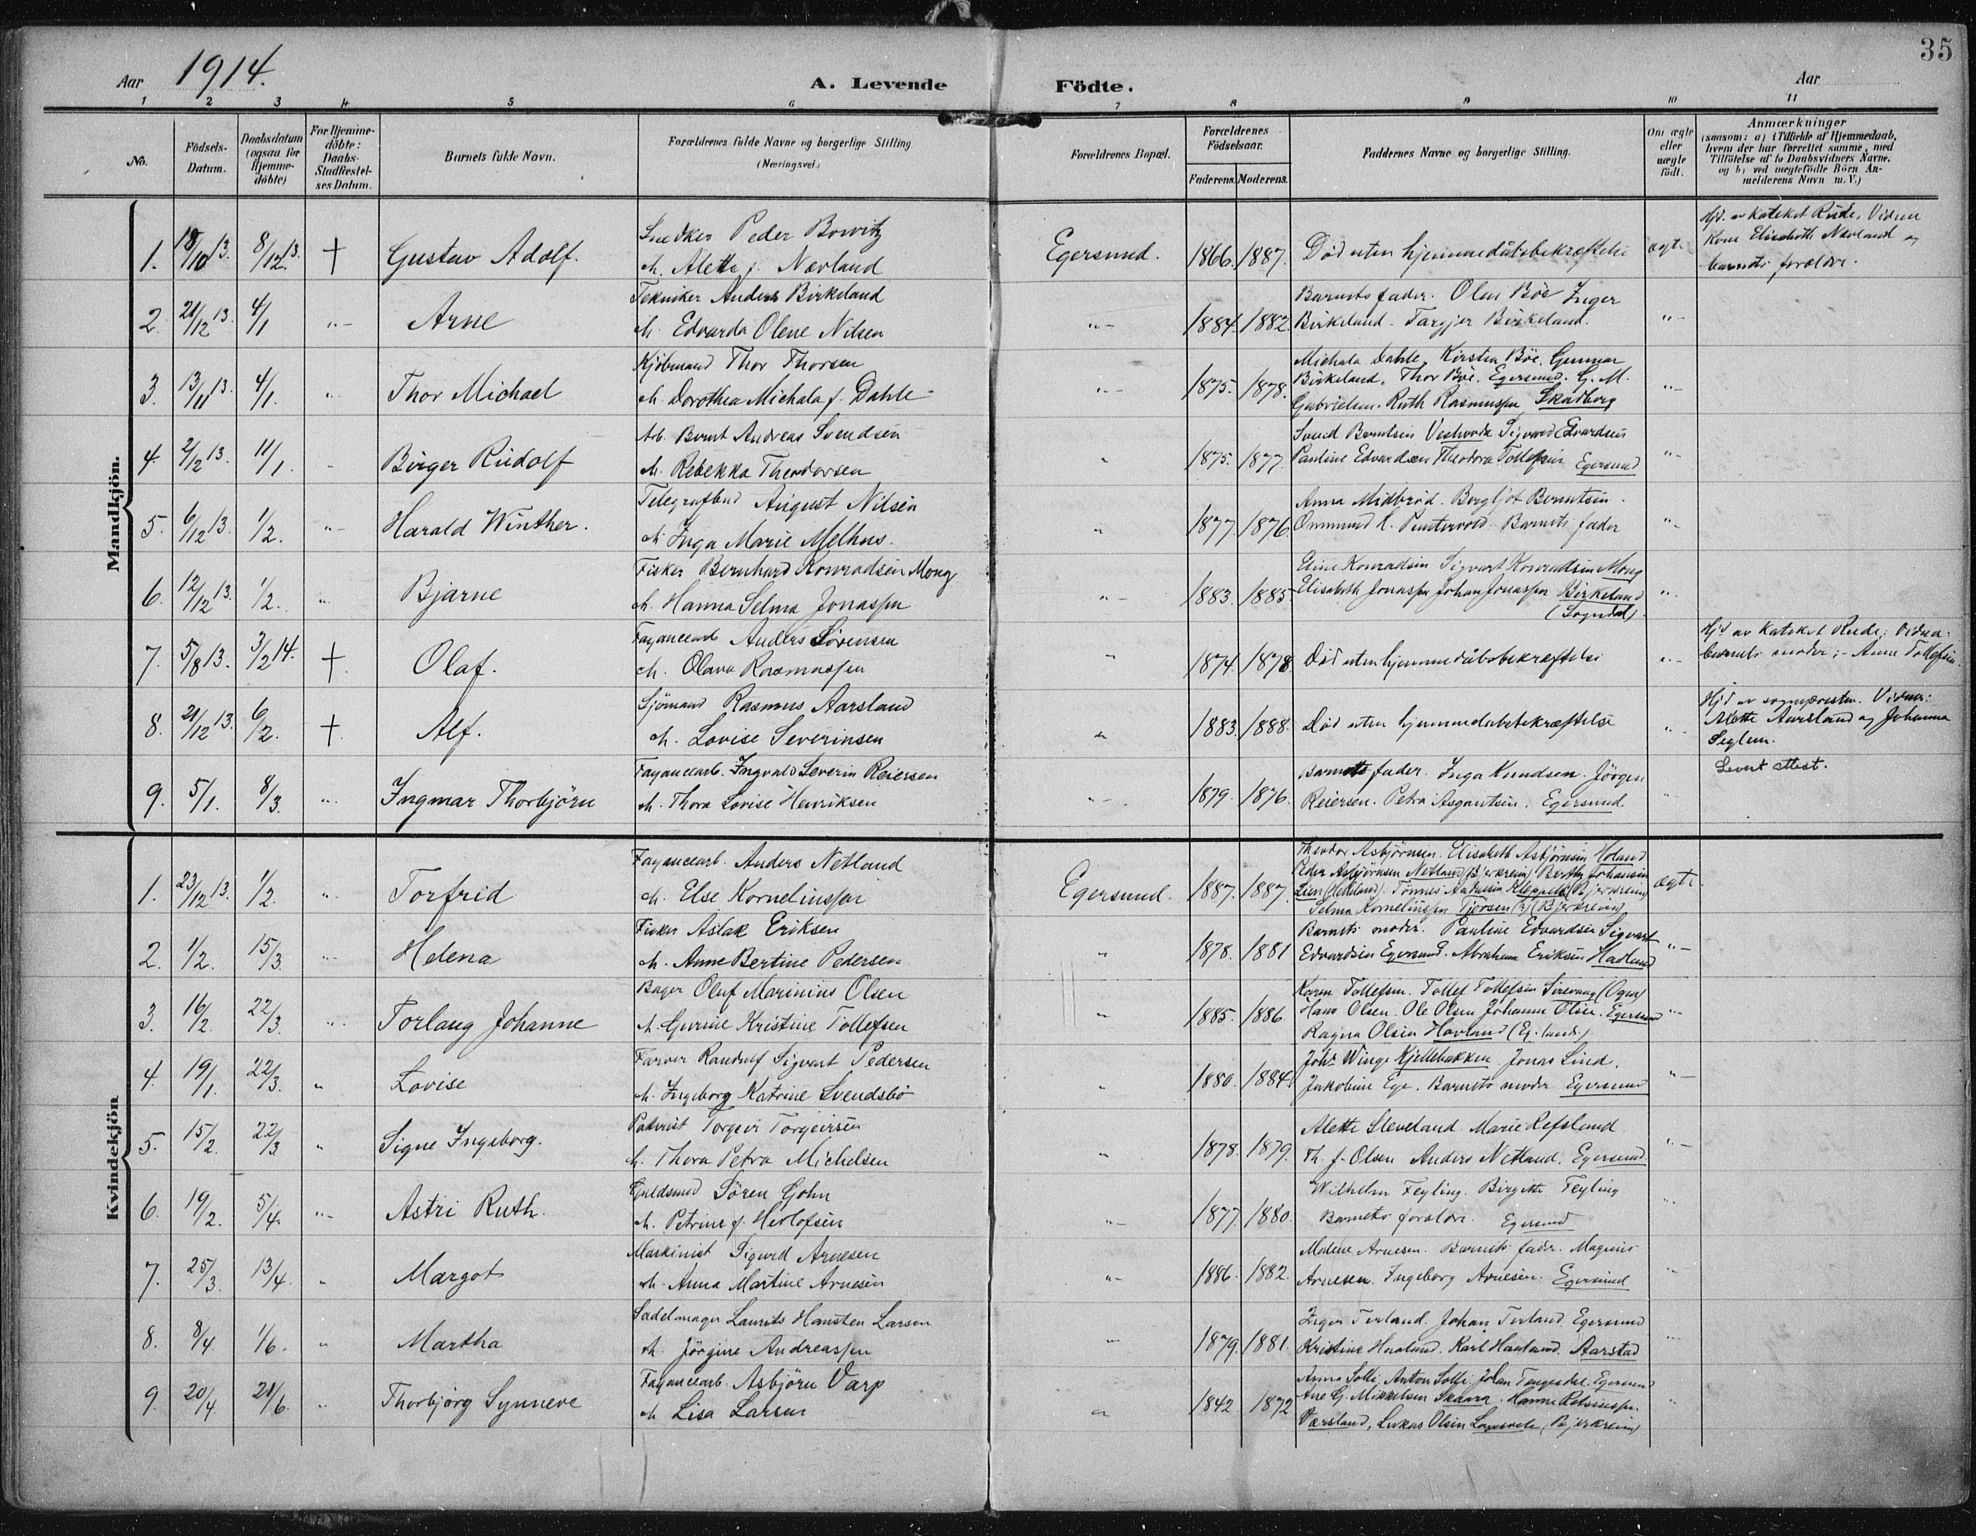 35
Aar 1914. A. Levende Födte. Aar
1 2 3 4 5 6 7 8 9 10 11
No.
Födsels-
Datum.
Daabsdatum
(ogsaa for
Hjemme-
döbte)
For Hjemme-
döbte:
Daabs-
Stadfæstel-
ses Datum.
Barnets fulde Navn.
Forældrenes fulde Navne og borgerlige Stilling
(Næringsvei.)
Forældrenes Bopæl.
Forældrenes
Födselsaar.
Faderens. Moderens.
Faddernes Navne og borgerlige Stilling.
Om ægte
eller
uægte
födt.
Anmærkninger
(saasom: a) i Tilfælde af Hjemmedaab,
hvem der har forrettet samme, med
Tilföielse af to Daabsvidners Navne.
og b) ved uægtefödte Börn An-
melderens Navn m. V.)
Mandkjön.
1. 18/10 13. 8/12 13. † Gustav Adolf.
Snedker Peder Bowitz
M. Alette f. Nævland
Egersund. 1866. 1887. Död uten hjemmedåbsbekræftelse ægte
Hjd. av Kateket Rude. Vidner
Kone Elisabeth Nævland og
barnets forældre.
2. 21/12 13. 4/1 "- Arne
Tekniker Anders Birkeland
M. Edvarda Olene Nilsen
"- 1884. 1882.
Barnets fader. Olen Böe Inger
Birkeland. Targjer Birkeland. "-
3. 13/11 13. 4/1. "- Thor Michael
Kjöbmand Thor Thorsen
M. Dorothea Michala f. Dahle
"- 1875. 1878.
Michala Dahle. Kirsten Böe. Gunnar
Birkeland. Thor Böe. Egersund. G. M.
Gabrielsen. Ruth Rasmussen Skadberg "-
4. 2/12 13. 11/1. Birger Rudolf
Arb. Bernt Andreas Svendsen
M. Rebekka Theodorsen
" 1875. 1877.
Svend Berntsen Sigvard Edvardsen
Pauline Edvardsen Theodora Tollefsen Egersund "-
5. 6/12 13. 1/2. "- Harald Winther.
Telegrafbud August Nilsen
M. Inga Marie Melhus.
" 1877. 1876.
Anna Midbröd. Bergljot Berntsen.
Ommund Barnets fader "-
6. 12/12 13. 1/2. " Bjarne
Fisker Bernhard Konradsen Mong
M. Hanna Selma Jonassen
"- 1883. 1885
Eline Konradsen Sigvart Konradsen Mong
Elisabeth Jonassen Johan Jonassen Birkeland
(Sogndal). "-
7. 5/8 13. 3/2 14. † Olaf.
Fayancearb Anders Sörensen
M. Olava Rasmussen
" 1874. 1878. Död uten hjemmedåbsbekræftelse "-
Hjd av Kateket Rude; Vidner:
barnets moder; - Anne Tollefsen.
8. 21/12 13. 6/2. † Alf.
Sjömand Rasmus Aarsland
M. Lovise Severinsen
" 1883. 1888. Död uten hjemmedåbsbekræftelse "-
Hjd av sognepresten. Vidner:
Alette Aarsland og Johanna
Seglem.
9. 5/1. 8/3. "- Ingmar Thorbjörn
Fayancearb. Ingvald Severin Reiersen
M. Thora Lovise Henriksen
"- 1879. 1876.
Barnets fader. Inga Knudsen. Jörgen
Reiersen. Petra Asgautsen. Egersund.
Levert attest.
Kvindekjön
1. 23/12 13. 1/2. " Torfrid
Fayancearb. Anders Netland
M. Else Korneliussen
Egersund. 1887. 1887.
Theodor Asbjörnsen. Elisabeth Asbjörnsen
Peder Asbjörnsen Netland (Bjerkreim)
Selma Korneliussen (Bjerkreim) ægte.
2. 1/2. 15/3. Helena
Fisker Aslak Eriksen
M. Anne Bertine Pedersen
" 1878. 1881
Barnets moder. Pauline Edvardsen Sigvart
Edvardsen Egersund. Abraham Eriksen Havland "-
3. 16/2. 22/3. Torlaug Johanne
Bager Oluf Marinius Olsen
M. Gurine Kristine Tollefsen
" 1885. 1886
Karen Tollefsen. Tollef Tollefsen Sirevaag (Ogna)
Hans Olsen. Ole Olsen Johanna Olsen. Egersund
Ragna Olsen Havland (Eg. lands.) "-
4. 19/1. 22/3. " Lovise
Farver Randulf Sigvart Pedersen
M. Ingeborg Katrine Svendsbö
" 1880. 1884.
Johs Winge Kjellebakken. Jonas Lind.
Jakobine Ege. Barnets moder Egersund "-
5. 15/2. 22/3. " Signe Ingeborg.
Torgeir Torgeirsen
M. Thora Petra Michelsen
" 1878. 1879.
Alette Sleveland. Marie Refsland.
Th. f. Olsen Anders Netland. Egersund "-
6. 19/2. 5/4. "- Astri Ruth.
Guldsmed Sören Gohn
M. Petrine f. Herlofsen
"- 1877. 1880.
Wilhelm Feyling. Birgitte Feyling
Barnets forældre. Egersund
7. 25/3. 13/4. " Margot
Maskinist Sigurd Arnesen
M. Anna Martine Arnesen
"- 1886. 1882.
Malene Arnesen. Barnets fader. Magnus
Arnesen. Ingeborg Arnesen. Egersund
8. 8/4. 1/6. " Martha
Sadelmager Laurits Hansten Larsen
M. Jörgine Andreassen
1879. 1881.
Inger Terland. Johan Terland. Egersund
Kristine Havland. Karl Havland. Aarstad
9. 20/4. 21/6. Thorbjörg Synneve
Fayancearb. Asbjörn Varp
M. Lisa Larsen
" 1842 1872
Anna Solli. Anton Solli. Johan Tengesdal. Egersund
Ane G. Mikkelsen Skaara. Hanne
Lukas Olsen (Bjerkreim)